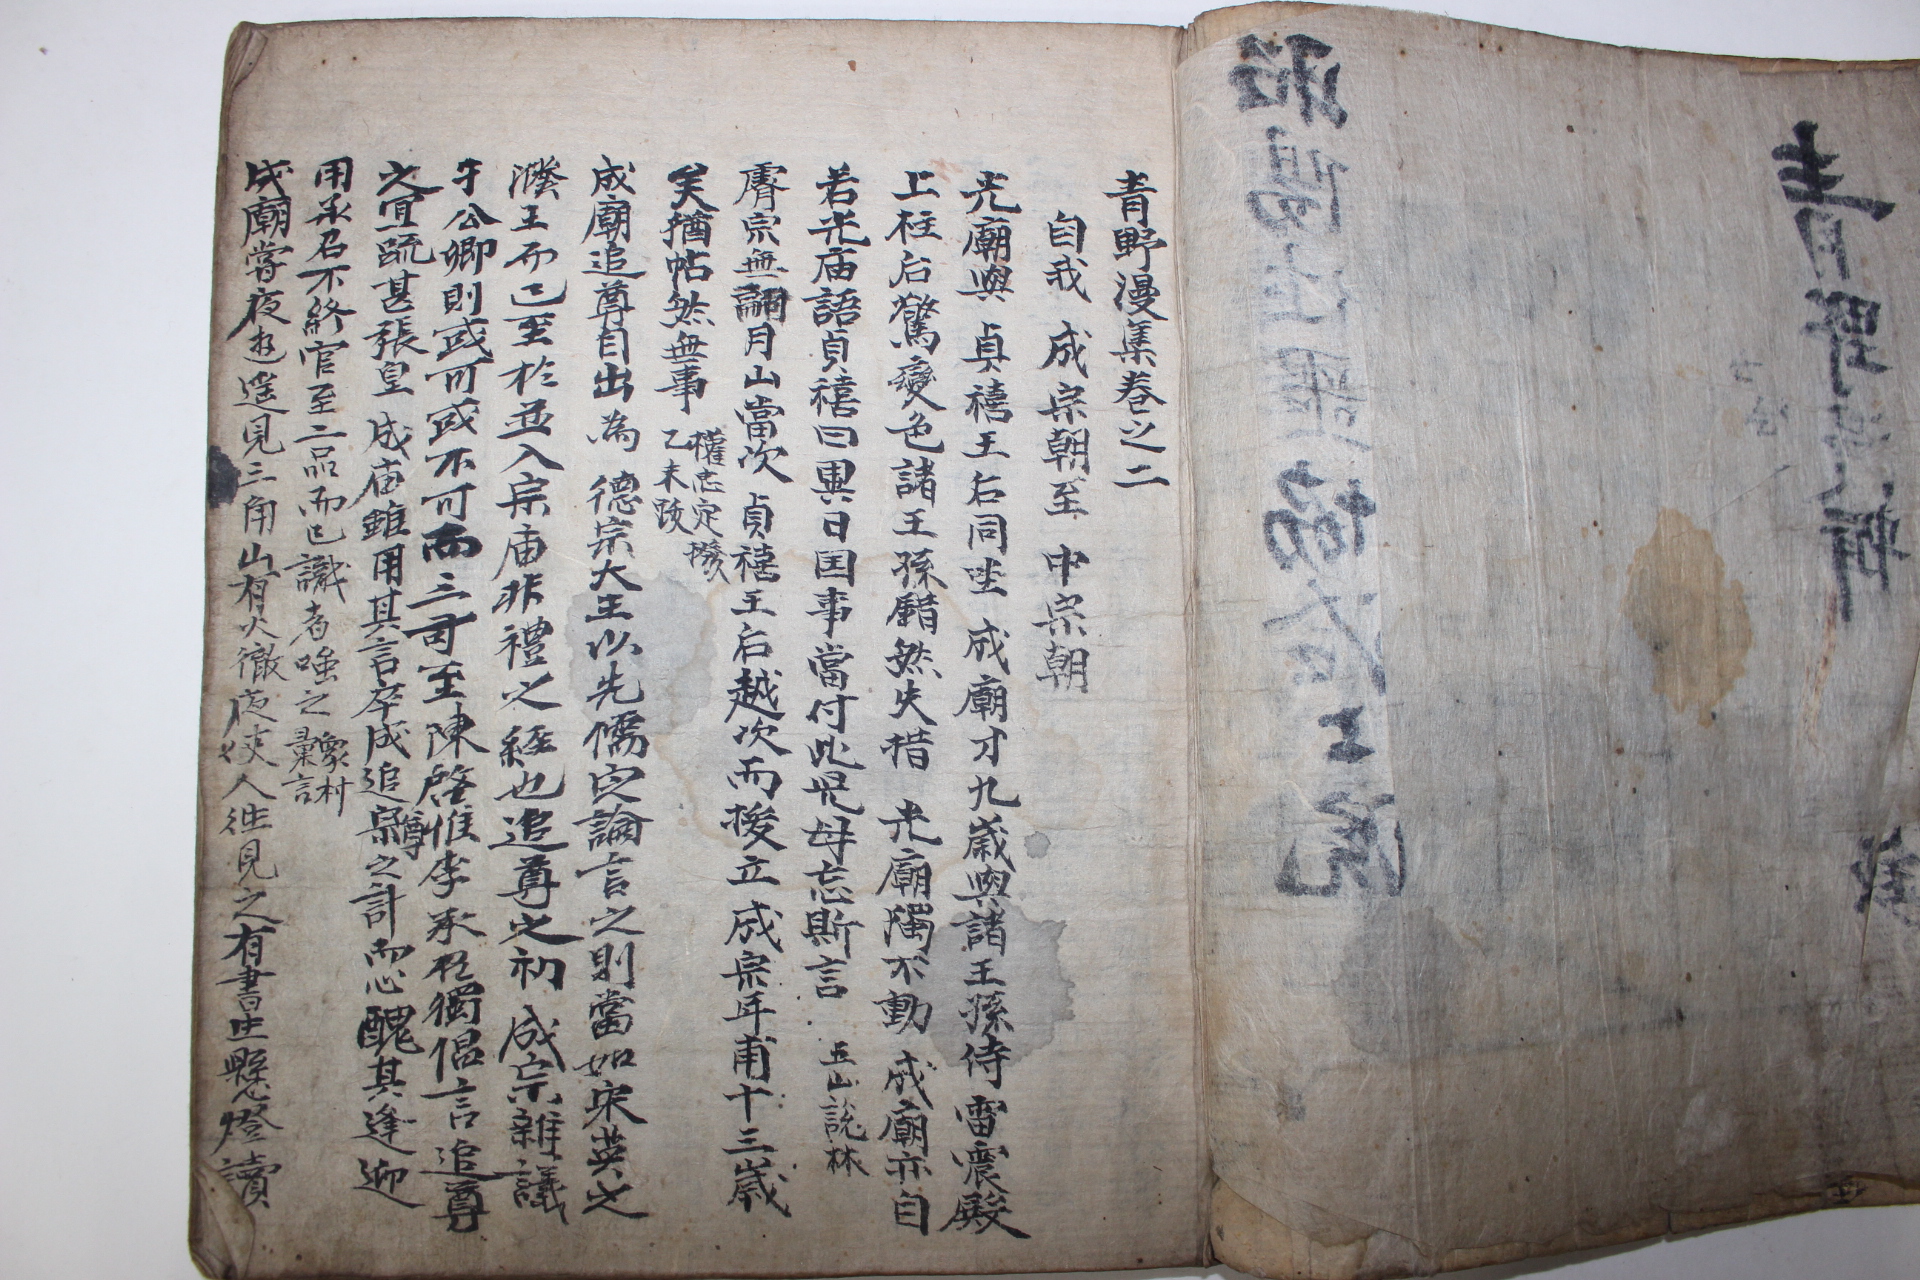 青野漫集卷之二
自我 成宗朝至 中宗朝
光廟與 貞禧王后同坐 成廟才九歲與諸王孫侍雷震殿
上柱后驚變色諸王孫錯然失措 光廟獨不動 成廟亦自
若光庙語貞禧曰異日国事當付此児母忘斯言 五山說林
睿宗無嗣月山當次 貞禧王后越次而援立 成宗年甫十三歲
矣猶帖然無事 權忠定撥
乙未跋
成廟追尊自出為 德宗大王以先儒定論言之則當如宋英之
濮王而已至於並入宗庙非禮之経也追尊之初 成宗雜議
于公卿則或可或不可而三司至陳啓惟李承召獨倡言追尊
之宜䟽甚張皇 成庙雖用其言卒成追崇尊之計而心醜其逢迎
用承召不終官至二品而已識者嗤之 象村彙言
成廟嘗夜遊遥見三角山有火徹夜使人徃見之有書生懸燈讀
青野